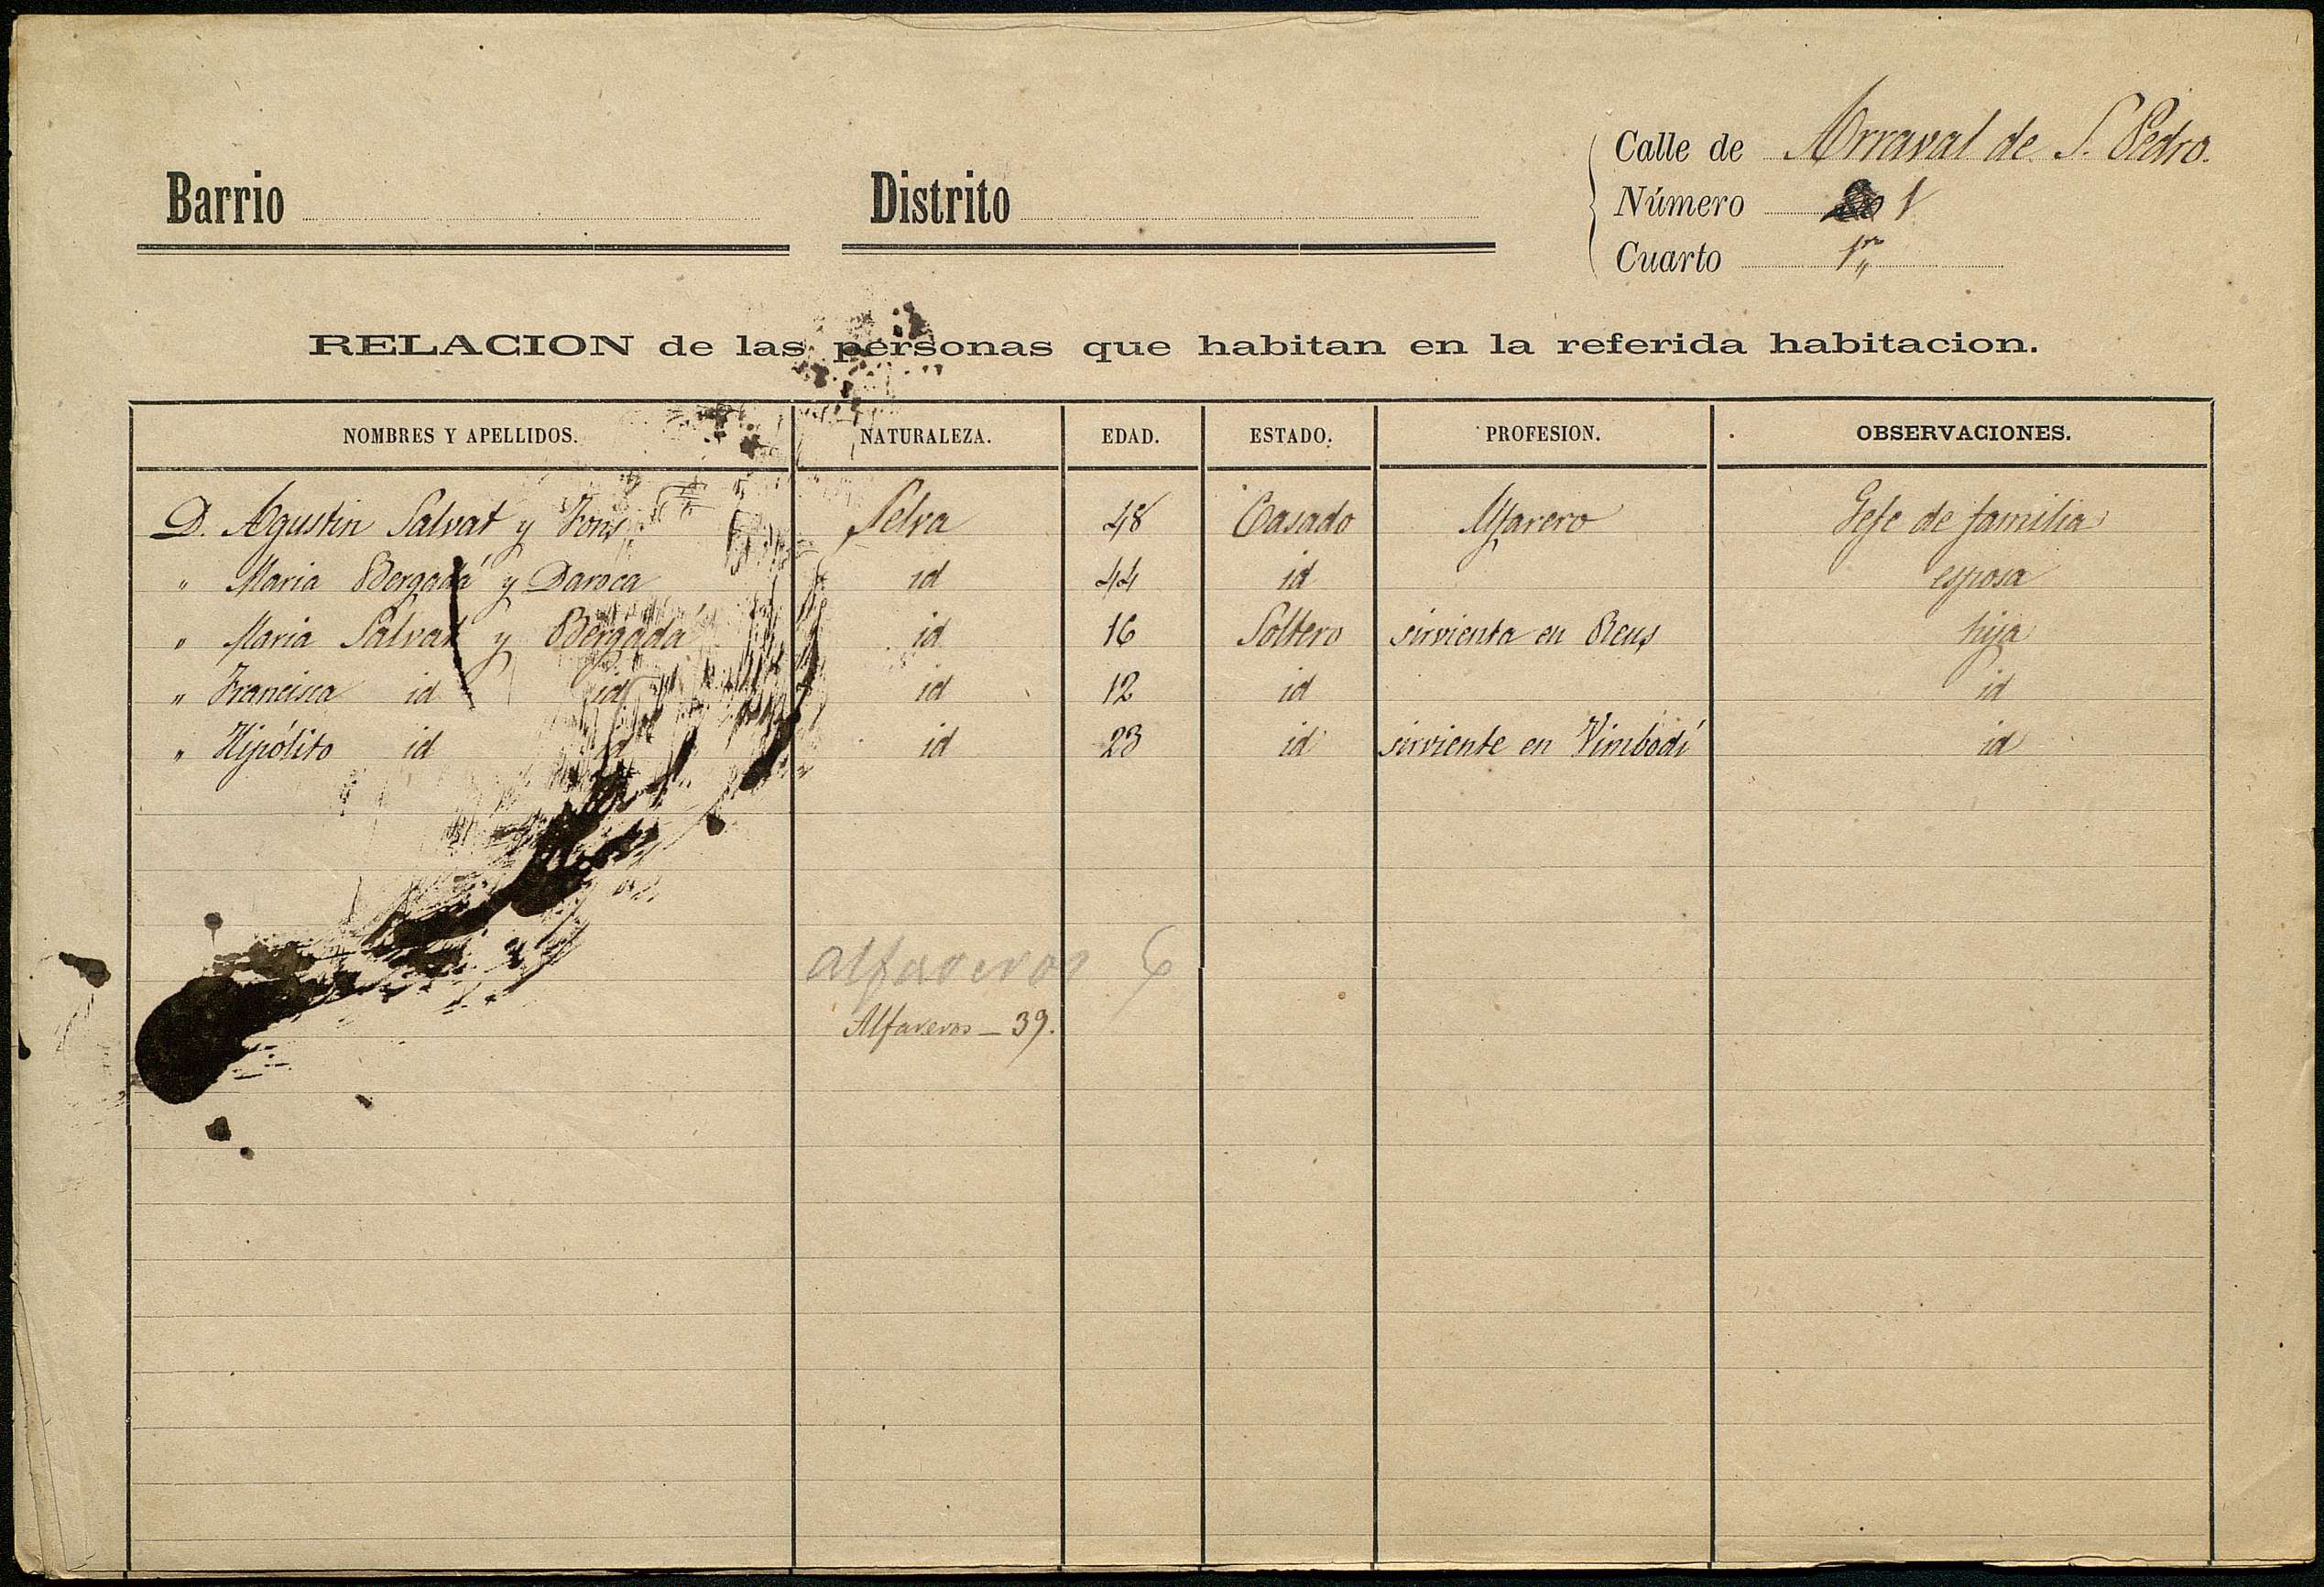 Calle de Arraval de S. Pedro.
Barrio Distrito Número 1
Cuarto 1º
RELACION de las personas que habitan en la referida habitacion.
NOMBRES Y APELLIDOS. NATURALEZA. EDAD. ESTADO. PROFESION. OBSERVACIONES.
D. Agustin Salvat y Fons Selva 48 Casado Alfarero Gefe de familia
" Maria Bergadá y Daroca id 44 id esposa
" Maria Salvat y Bergadá id 16 Soltero sirvienta en Reus hija
" Francisca id id id 12 id id
" Hipólito id id id 23 id sirviente en Vimbodí id
alfareros 6
Alfareros - 39.